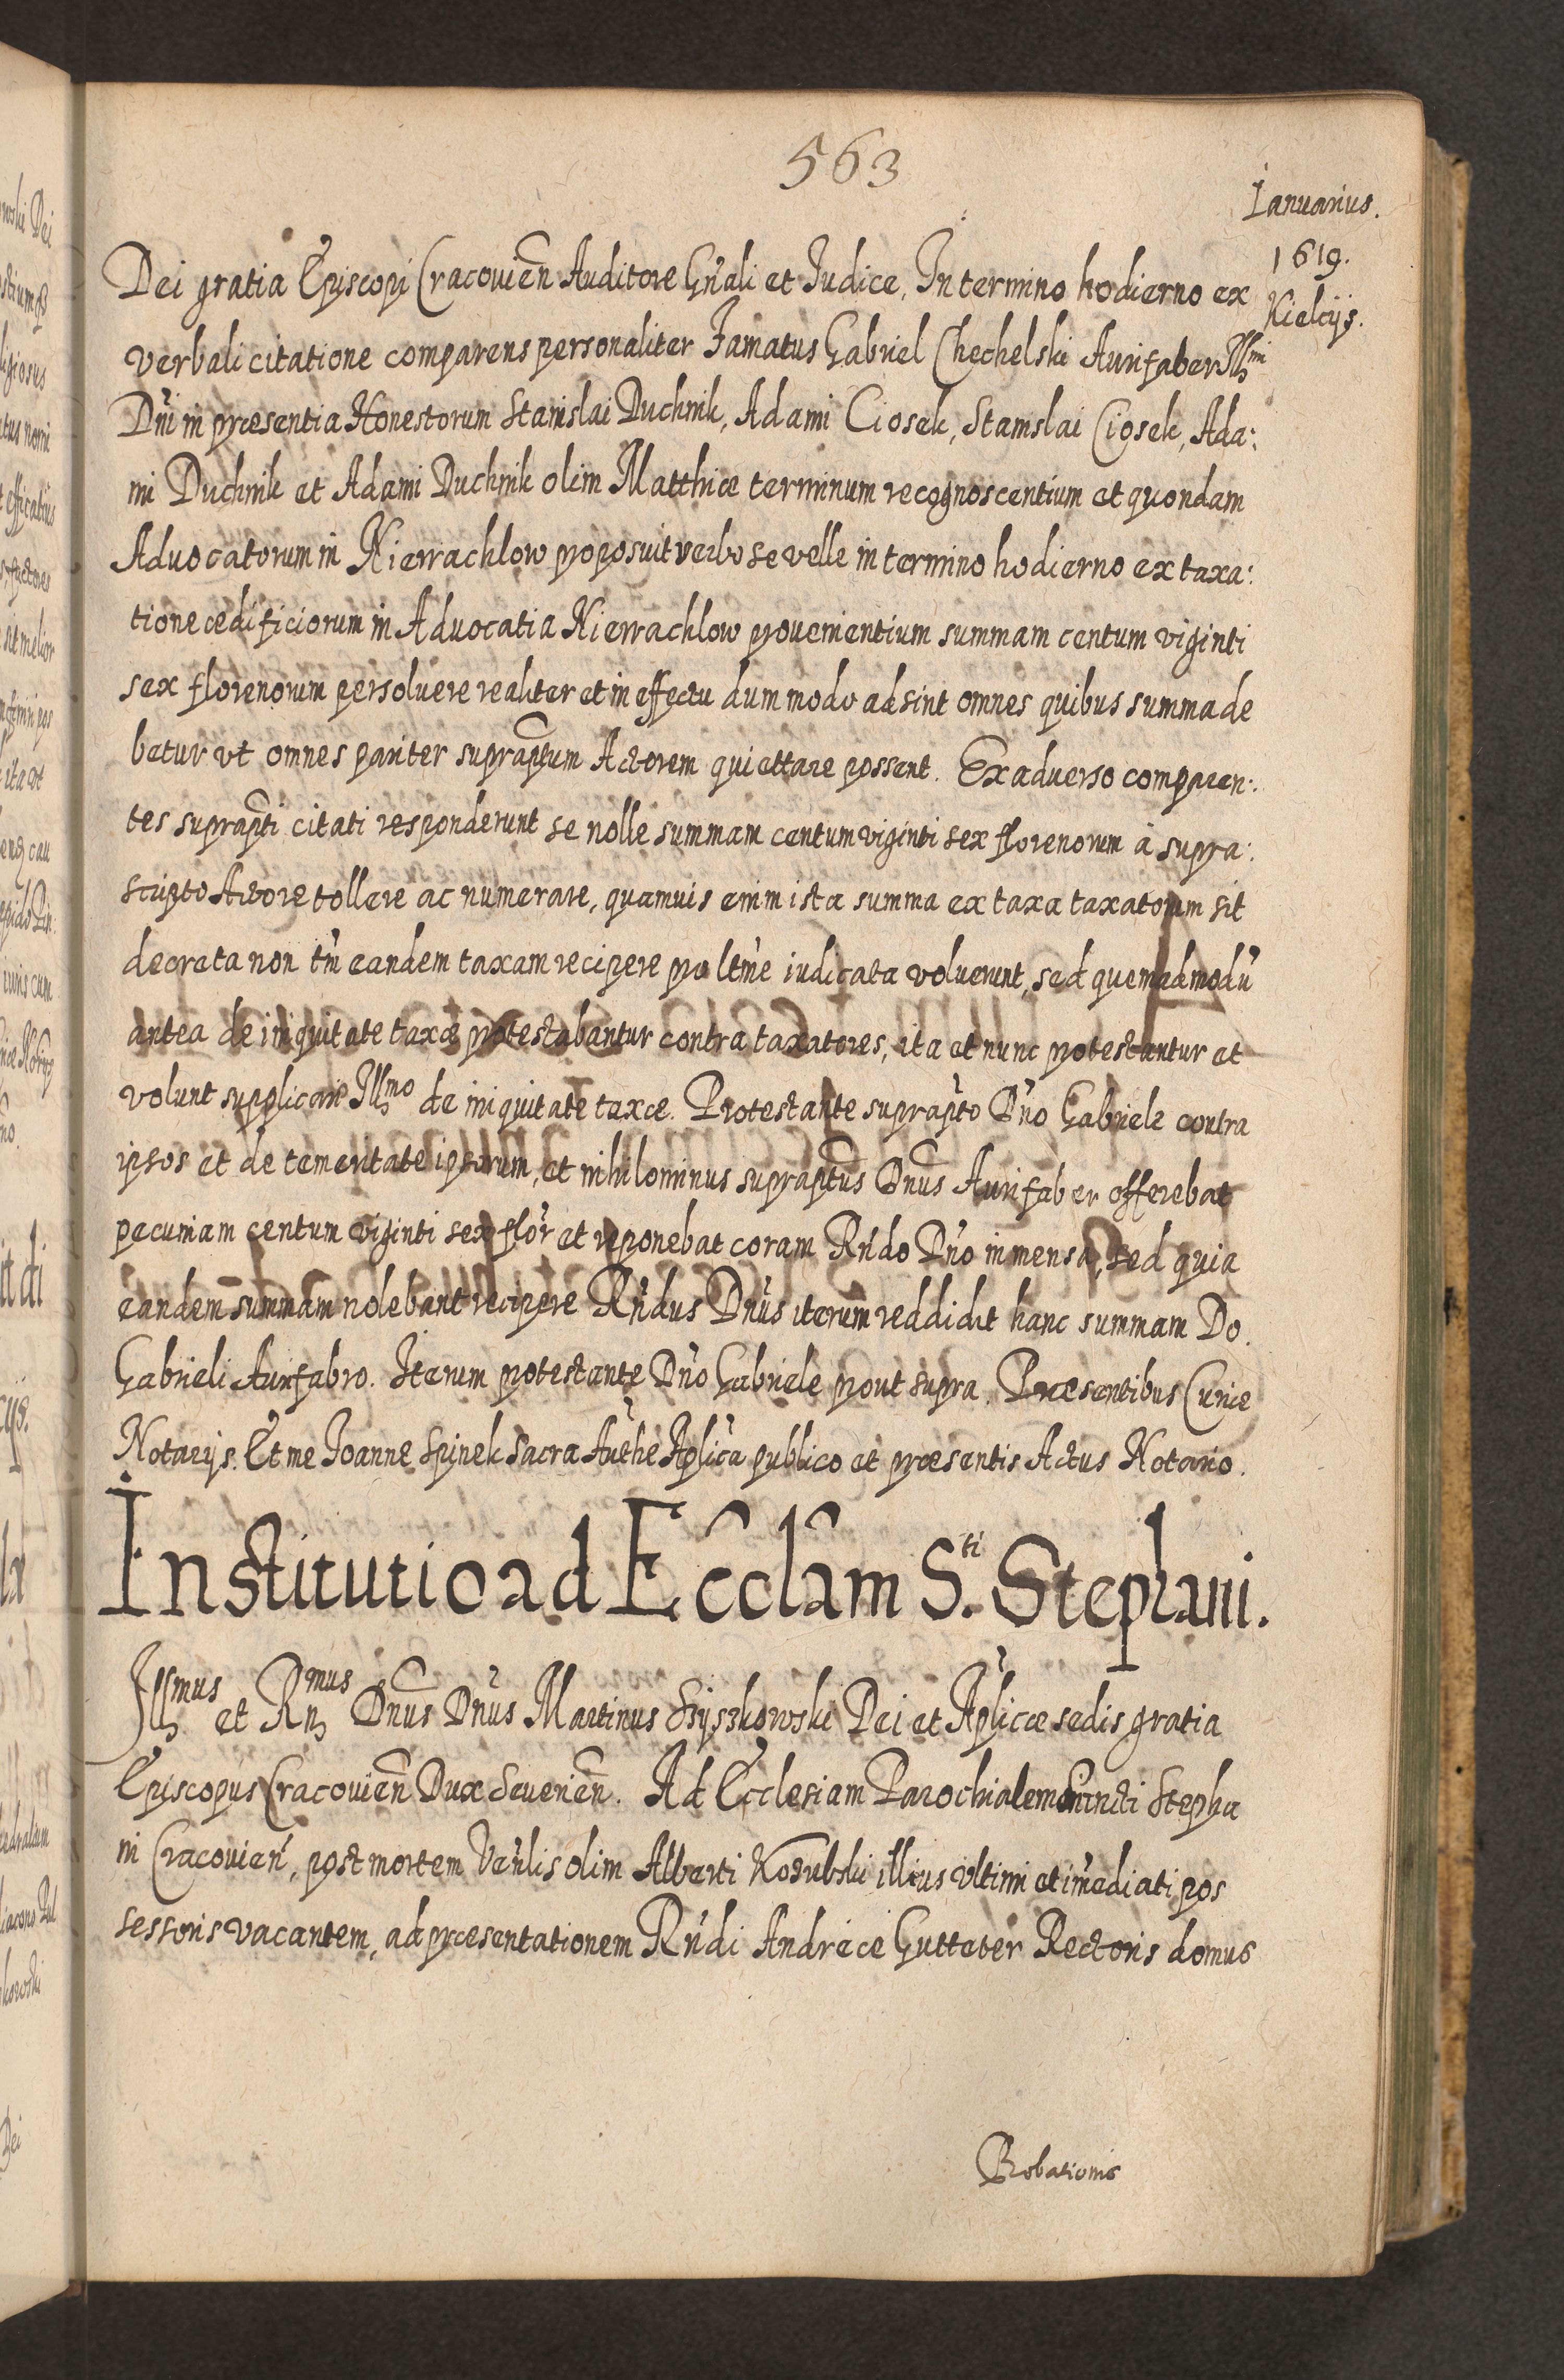 563
Ianuarius.
1619.
Kielcijs.
Dei gratia Episcopi Cracovien Auditore Gnali et Iudice, In termino hodierno ex
verbali citatione comparens personaliter Famatus Gabriel Chechelski Aurifaber Illmi
Dni in præsentia Honestorum Stanislai Duchnik, Adami Ciosek, Stanislai Ciosek, Ada:
mi Duchnik et Adami Duchnik olim Matthiæ terminum recognoscentium et quondam
Advocatorum in Nierrachlow proposuit verbo se velle in termino hodierno ex taxa:
tione ædificiorum in Advocatia Nierrachlow provenientium summam centum viginti
sex florenorum persoluere realiter et in effectu dummodo adsint omnes quibus summa de
betur vt omnes pariter supraptum Actorem quiettare possent. Ex adverso comparen:
tes suprapti citati responderunt se nolle summam centum viginti sex florenorum à supra:
scripto Actore tollere ac numerare, quamuis enim ista summa ex taxa taxatorum sit
decreta non tm eandem taxam recipere pro ltme iudicata voluerunt, sed quemadmodu
antea de iniquitate taxæ protestabantur contra taxatores, ita et nunc protestantur et
volunt supplicare Illmo de iniquitate taxæ. Protestante suprapto Dno Gabriele contra
ipsos et de temeritate ipsorum, et nihilominus supraptus Dnus Aurifaber offerebat
pecuniam centum viginti sex flor et reponebat coram Rndo Dno in mensa, sed quia
eandem summam nolebant recipere Rndus Dnus iterum reddidit hanc summam Do.
Gabrieli Aurifabro. Iterum protestante Dno Gabriele prout supra. Præsentibus Curiæ
Notarijs. Et me Joanne Spinek Sacra Authe Aplica publico et præsentis Actus Notario.
Institutio ad Ecclam S.ti Stephani.
Illmus et Rnmus Dnus Dnus Martinus Szyszkowski Dei et Aplicæ sedis gratia
Episcopus Cracovien Dux Severien. Ad Ecclesiam Parochialem Sancti Stepha
ni Cracovien, post mortem Venlis olim Alberti Kozubski illius vltimi et imediati pos
sessoris vacantem, ad præsentationem Rndi Andreæ Gutteter Rectoris domus
Probationis